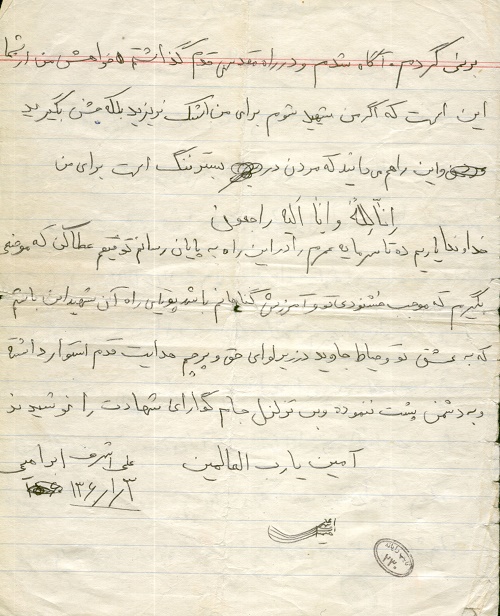 بوئی گردم. آگاه شدم و در راه مقدس قدم گذاشتم خواهش من از شما
این است که اگر من شهید شوم برای من اشک نریزید بلکه جشن بگیرید
واین راهم می دانید که مردن در بستر ننگ است برای من
اناللِّه وانا الیه راجعون
خداوندا یاریم ده تا سرمایه عمرم را در این راه به پایان رسانم توفیقم عطا کن که موضعی
بگیرم که موجب خشنودی تو و آمرزش گناهانم باشد راه آن شهیدان باشم
که به عشق تو وحیاط جاوید در زیر لوای حق و پرچم هدایت قدم استوار داشته
و به دشمن پشت ننموده وبی تزلزل جام گوارای شهادت را نوشیدند
آمین یا رب العالمین
علی اشرف ابراهیمی
۱۳۶۱/۱/۳